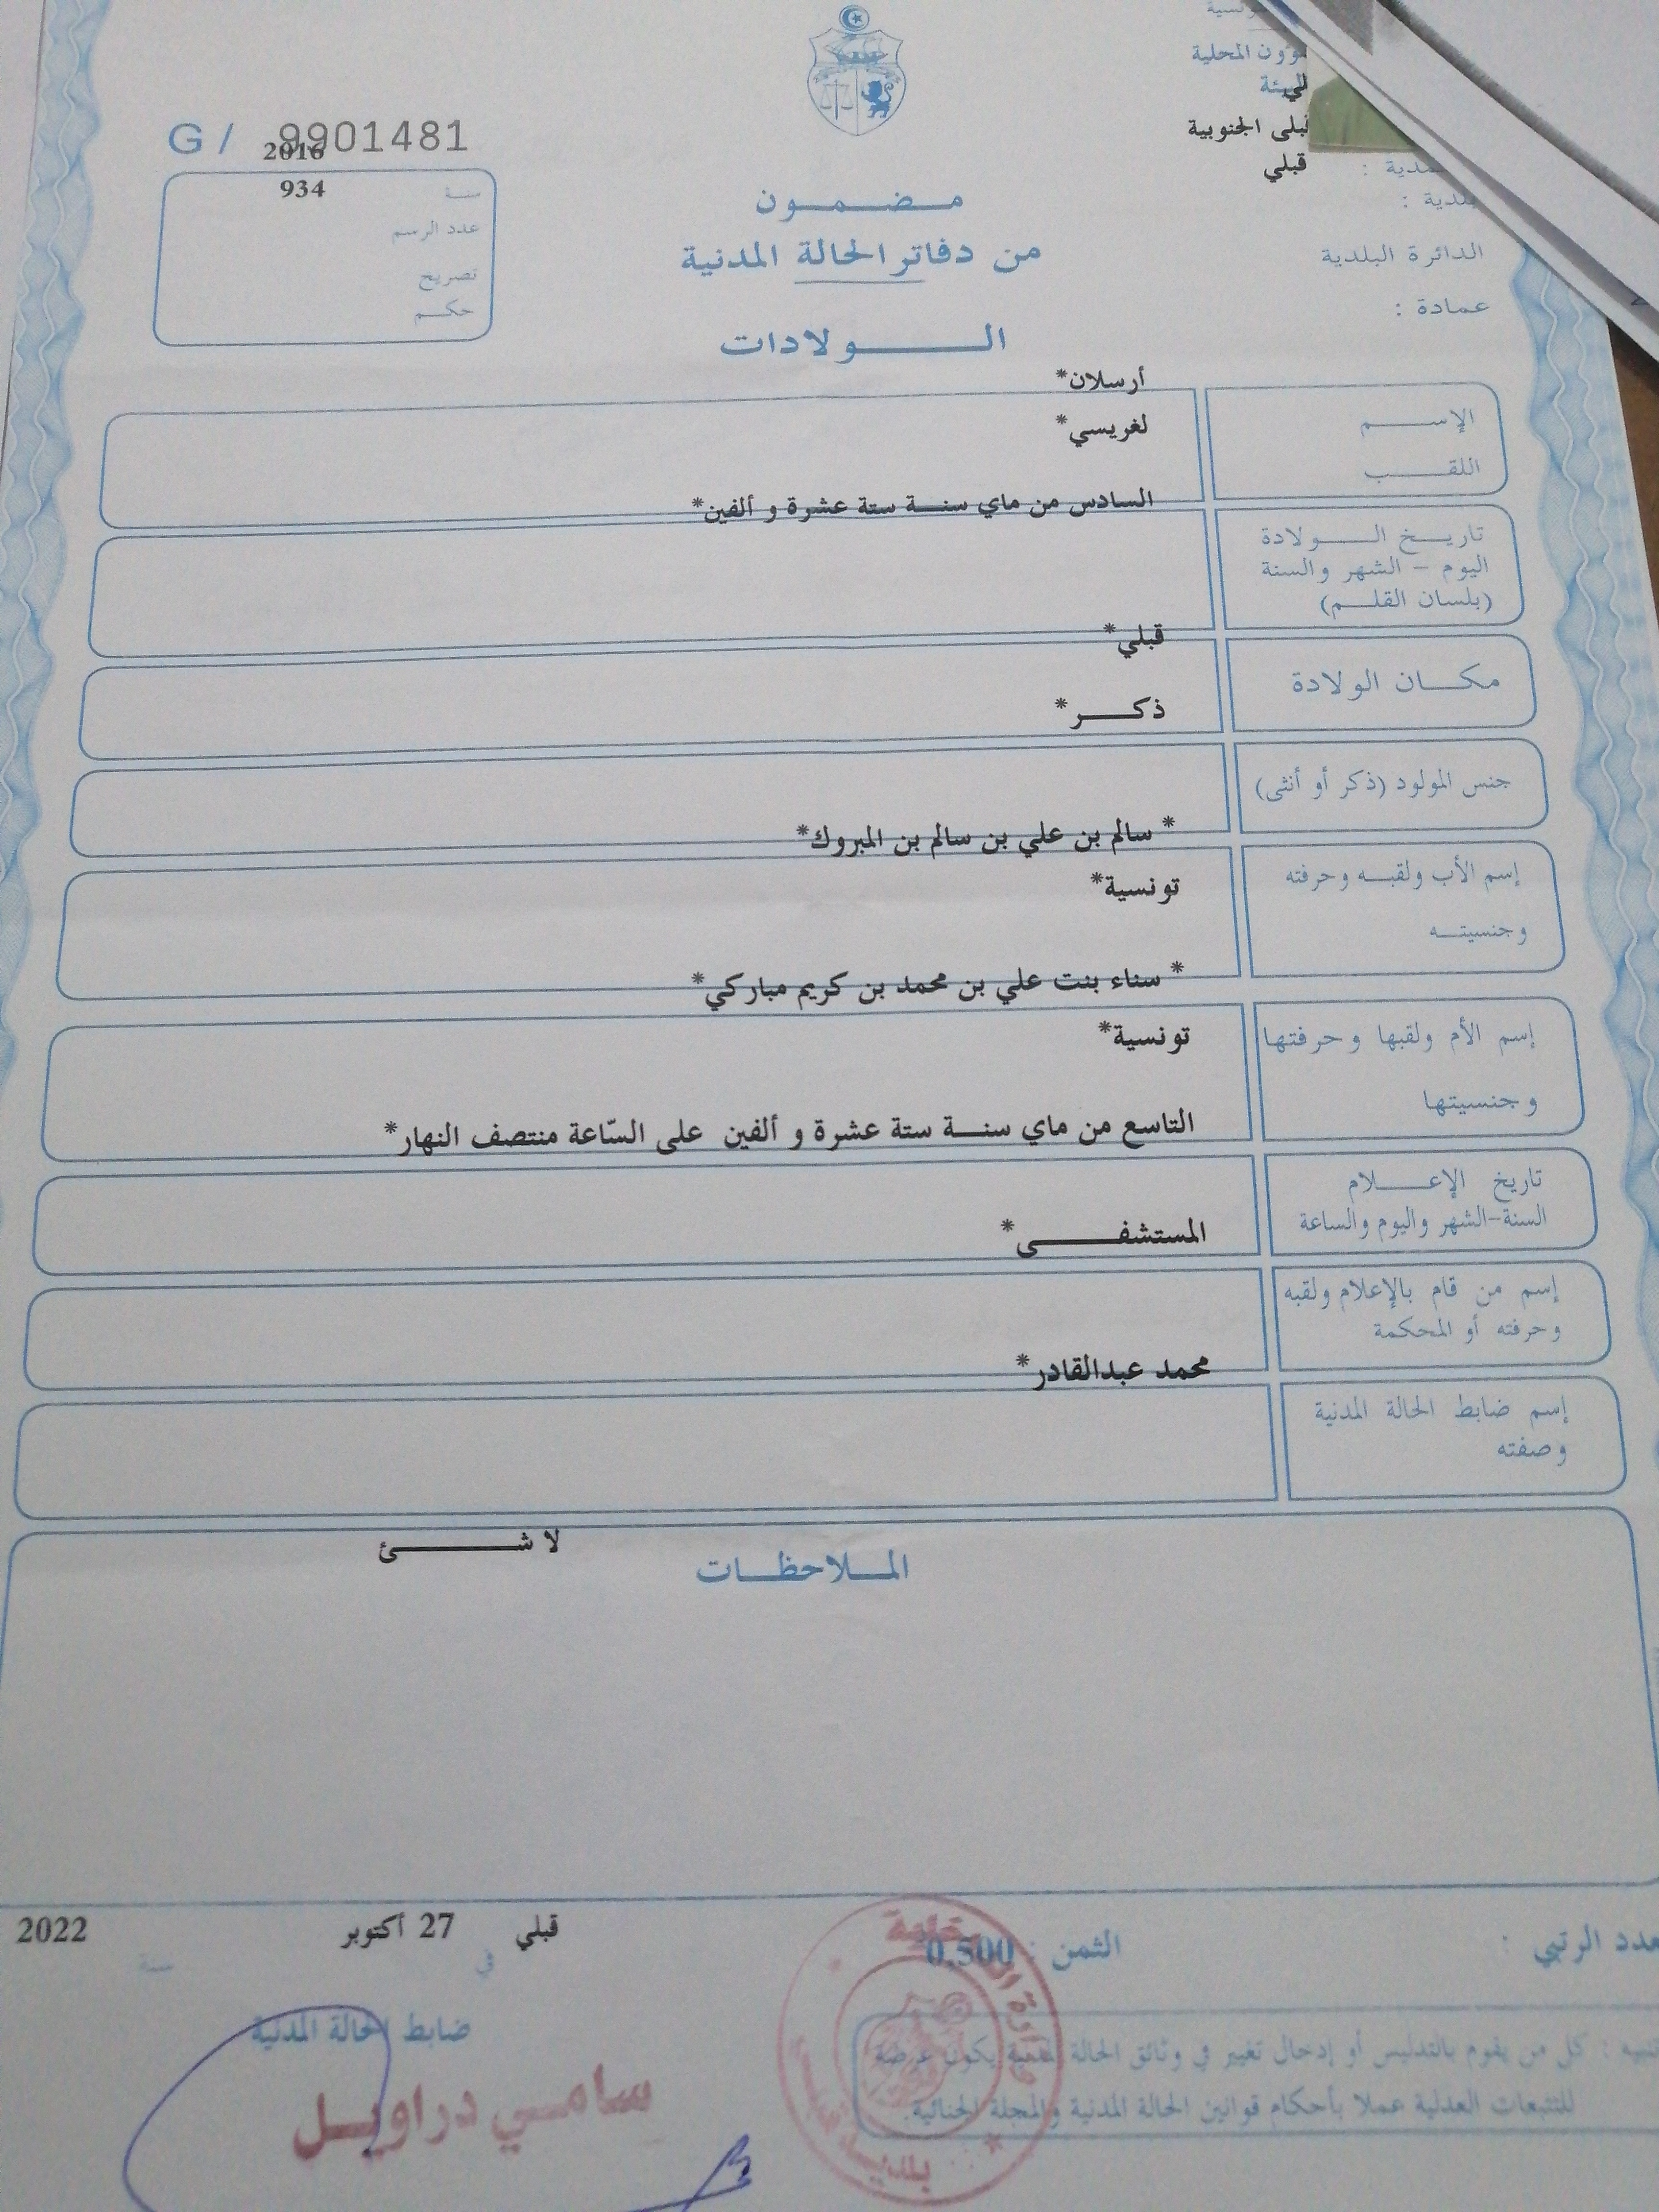 ؤون المحلية
البيئة
قبلي الجنوبية
قبلي
بلدية :
الدائرة البلدية
عمادة :
G / 9901481
2016
934
سنة
عدد الرسم
تصريح
حكم
مضمون
من دفاتر الحالة المدنية
الولادات
أرسلان*
الإسم
لغريسي*
اللقب
السادس من ماي سنة ستة عشرة و ألفين*
تاريخ الولادة
اليوم - الشهر والسنة
(بلسان القلم)
قبلي*
مكان الولادة
ذكر*
جنس المولود (ذكر أو أنثى)
* سالم بن علي بن سالم بن المبروك*
إسم الأب ولقبه وحرفته
تونسية*
وجنسيته
* سناء بنت علي بن محمد بن كريم مباركي*
إسم الأم ولقبها وحرفتها
تونسية*
وجنسيتها
التاسع من ماي سنة ستة عشرة و ألفين على السّاعة منتصف النهار*
تاريخ الإعلام
السنة-الشهر واليوم والساعة
المستشفى*
إسم من قام بالإعلام ولقبه
وحرفته أو المحكمة
محمد عبدالقادر*
إسم ضابط الحالة المدنية
وصفته
لا شئ
الملاحظات
قبلي 27 أكتوبر 2022
في سنة
عدد الرتبي :
الثمن : 0.500
ضابط الحالة المدنية
سامي دراويل
تنبيه : كل من يقوم بالتدليس أو إدخال تغيير في وثائق الحالة المدنية يكون عرضة
للتتبعات العدلية عملا بأحكام قوانين الحالة المدنية والمجلة الجنائية.
بلدية قبلي